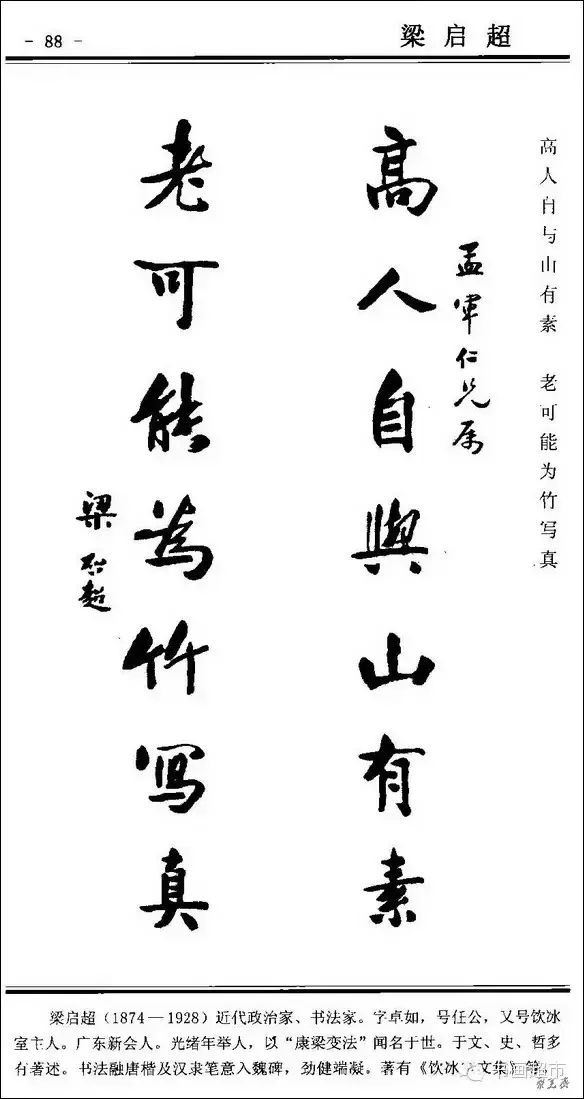 - 88 -
梁启超
高人自与山有素 老可能为竹写真
孟军仁兄属
高人自與山有素
老可能為竹寫真
梁啟超
梁启超（1874—1928）近代政治家、书法家。字卓如，号任公，又号饮冰
室主人。广东新会人。光绪年举人，以“康梁变法”闻名于世。于文、史、哲多
有著述。书法融唐楷及汉隶笔意入魏碑，劲健端凝。著有《饮冰室文集》等。